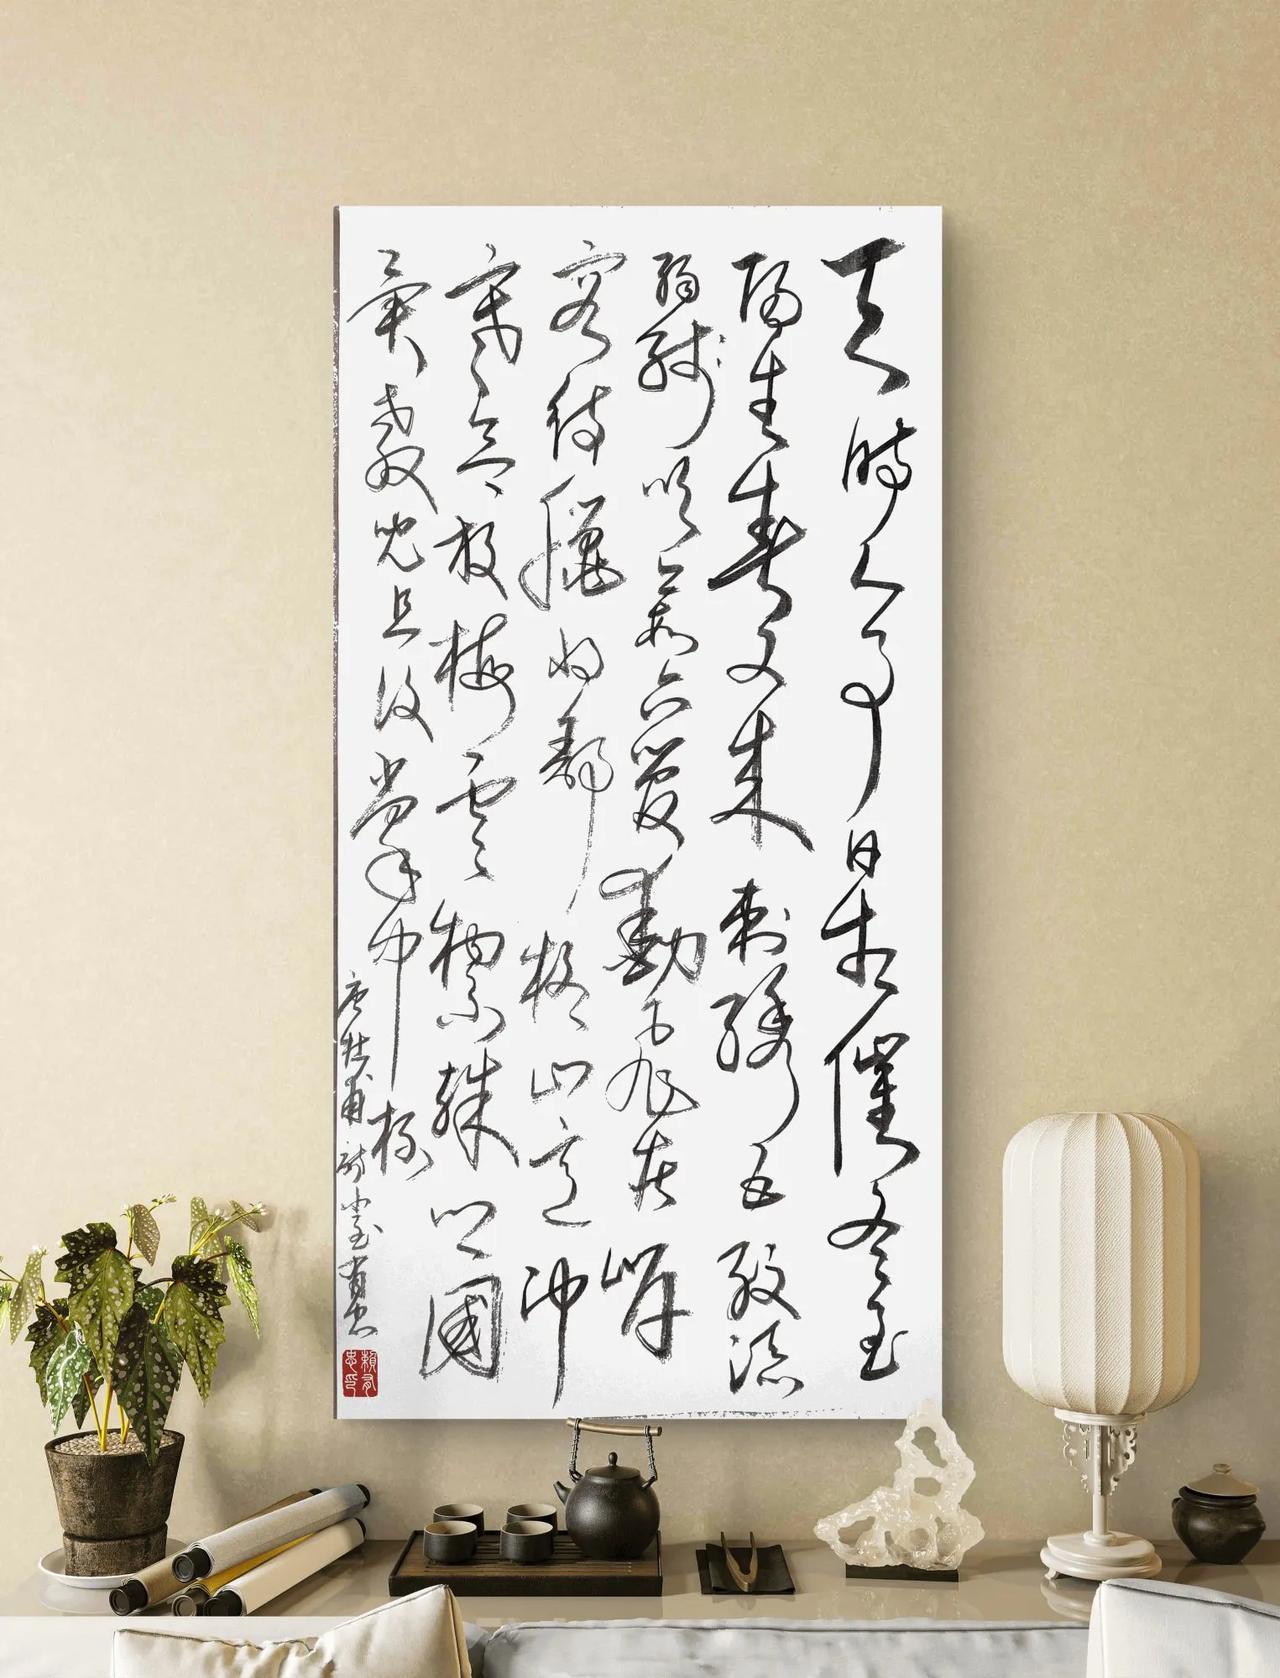 天時人事日相催冬至
陽生春又来刺繡五紋添
弱線吹葭六管動飛灰岸
容待臘将舒柳山意冲
寒欲放梅雲物不殊鄉國
異教兒且覆掌中杯
唐杜甫詩小至有忠
賴有忠印